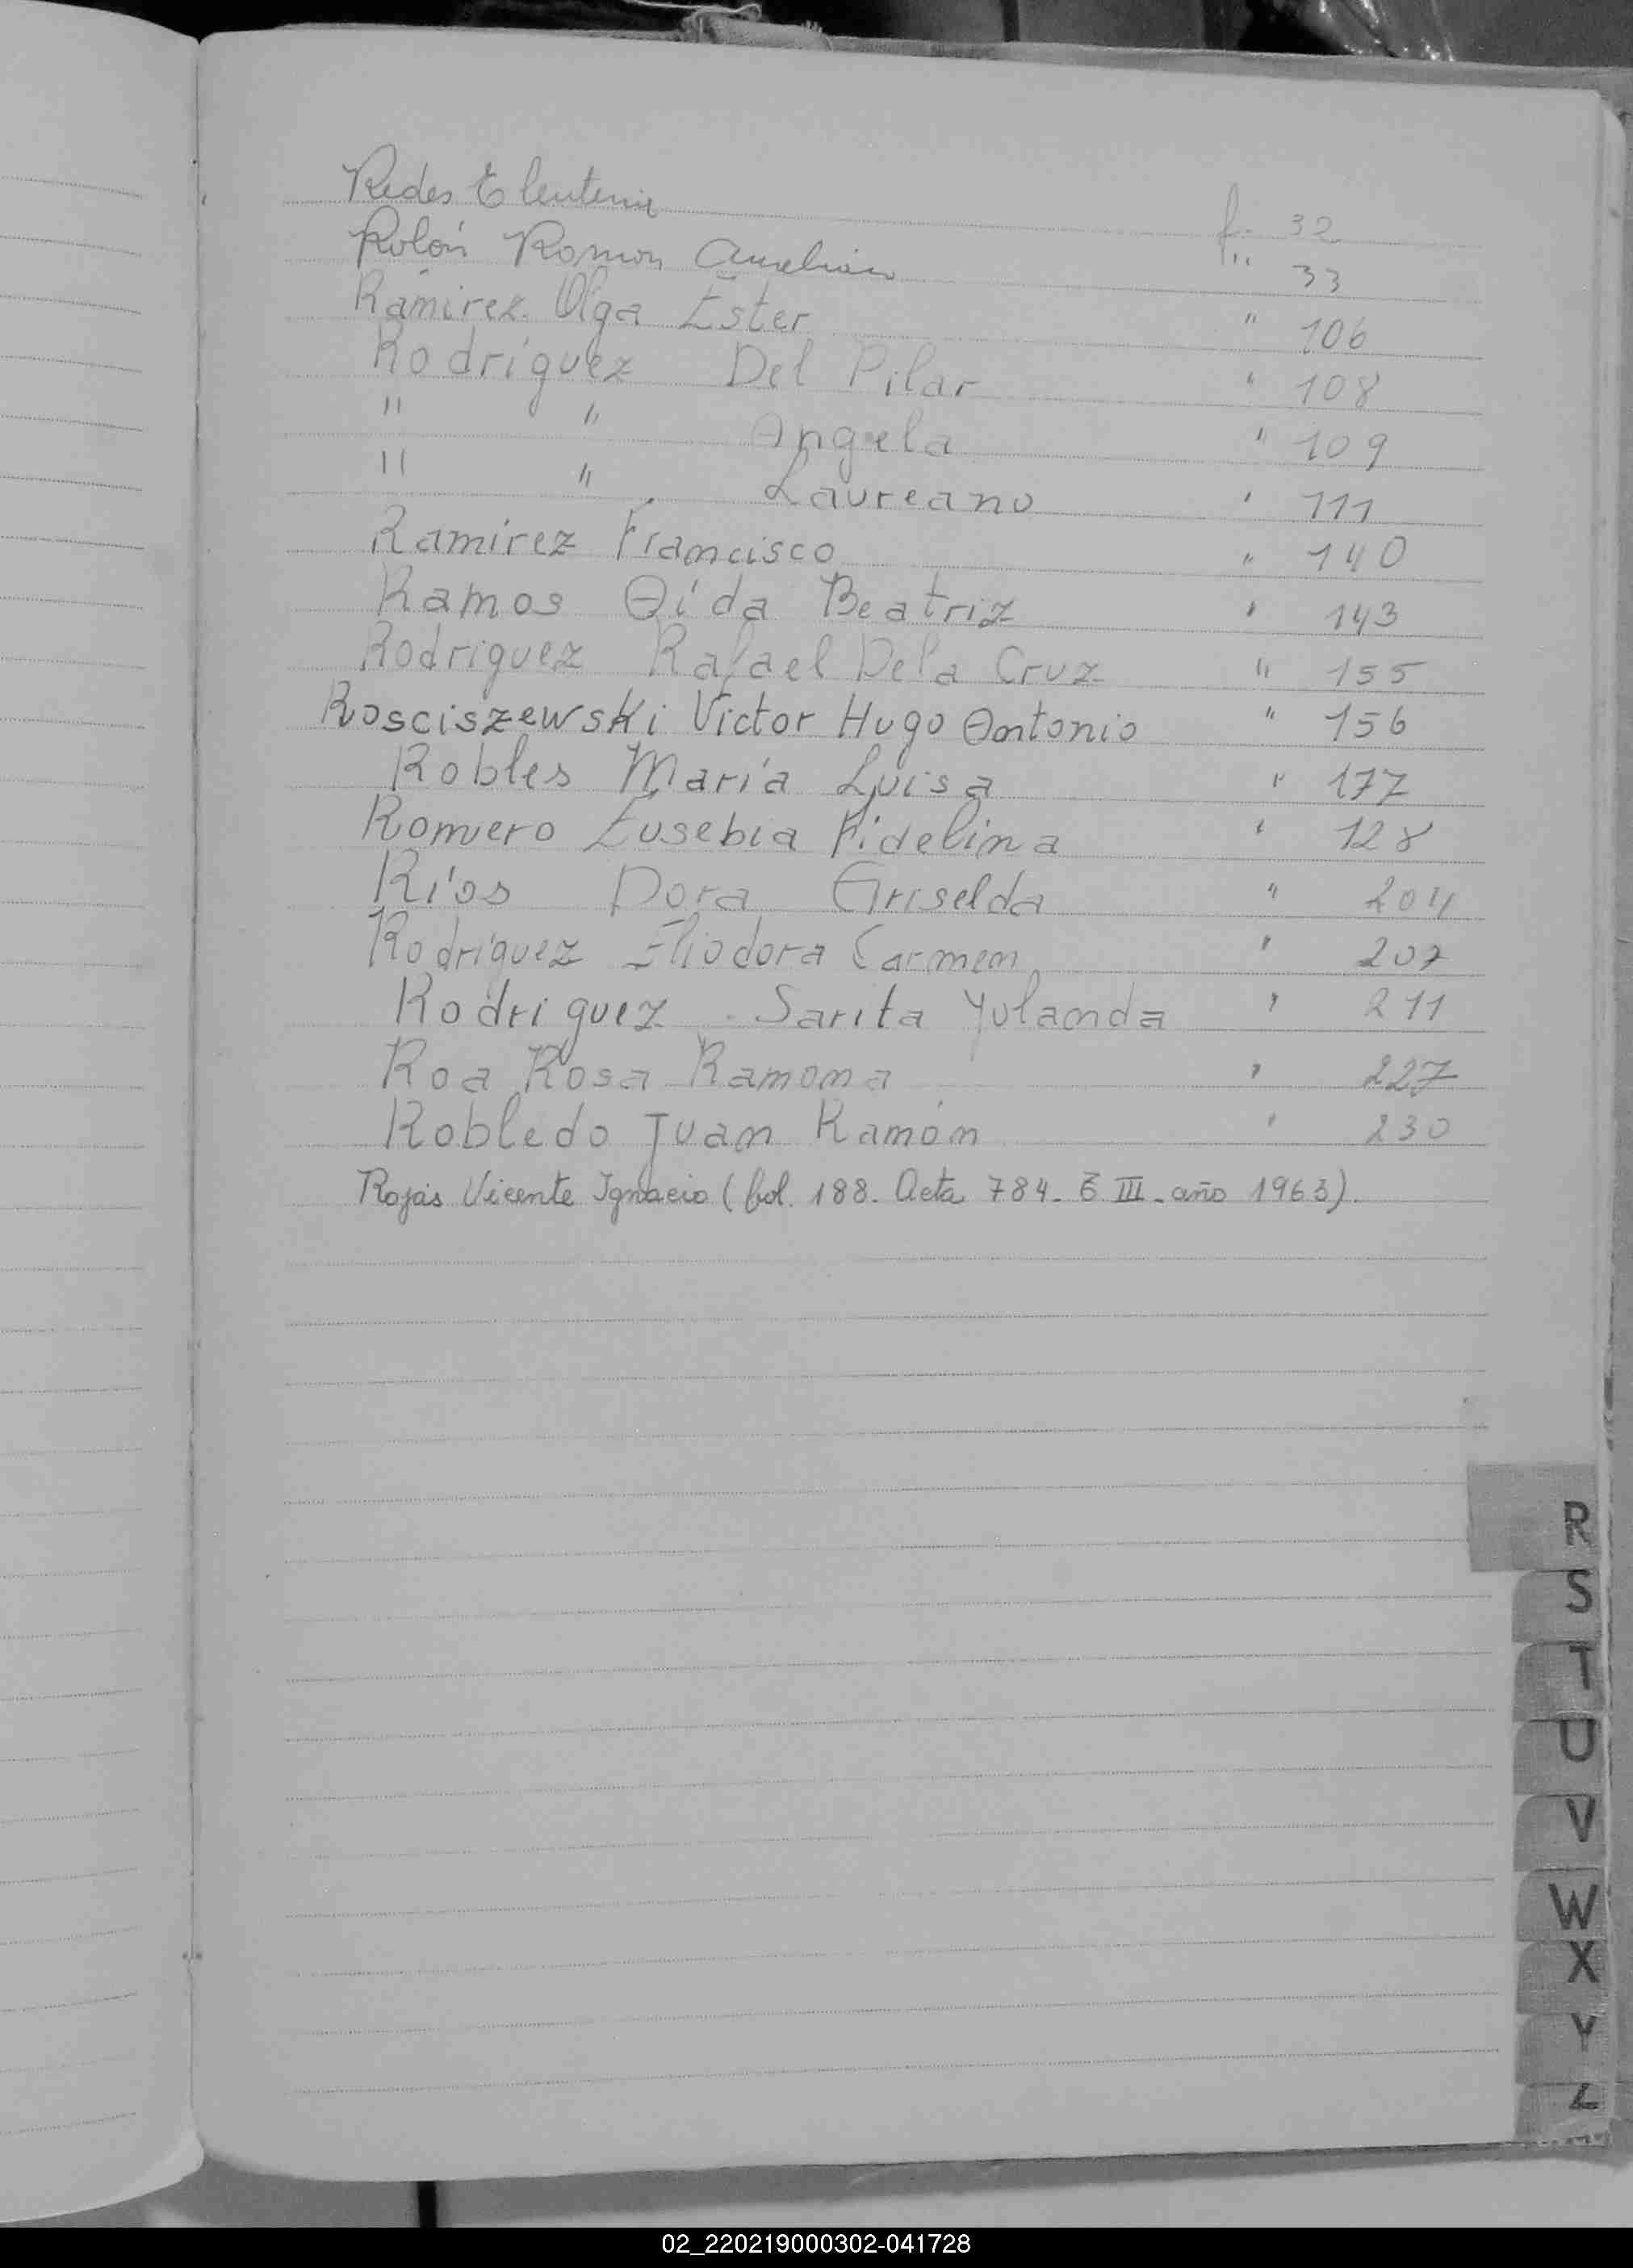 Redes Eleuteria f. 32
Rolón Ramon Aurelian " 33
Ramirez Olga Ester " 106
Rodríguez Del Pilar " 108
" " Angela " 109
" " Laureano " 111
Ramírez Francisco " 140
Ramos Aída Beatriz " 143
Rodriguez Rafael De la Cruz " 155
Rosciszewski Victor Hugo Antonio " 156
Robles María Luisa " 177
Romero Eusebia Fidelina " 128
Ríos Dora Griselda " 204
Rodríguez Eliodora Carmen " 207
Rodriguez Sarita Yolanda " 211
Roa Rosa Ramona " 227
Robledo Juan Ramón " 230
Rojas Vicente Ignacio (fol. 188. Acta 784. T III - año 1963).
R
S
T
U
V
W
X
Y
Z
02_220219000302-041728